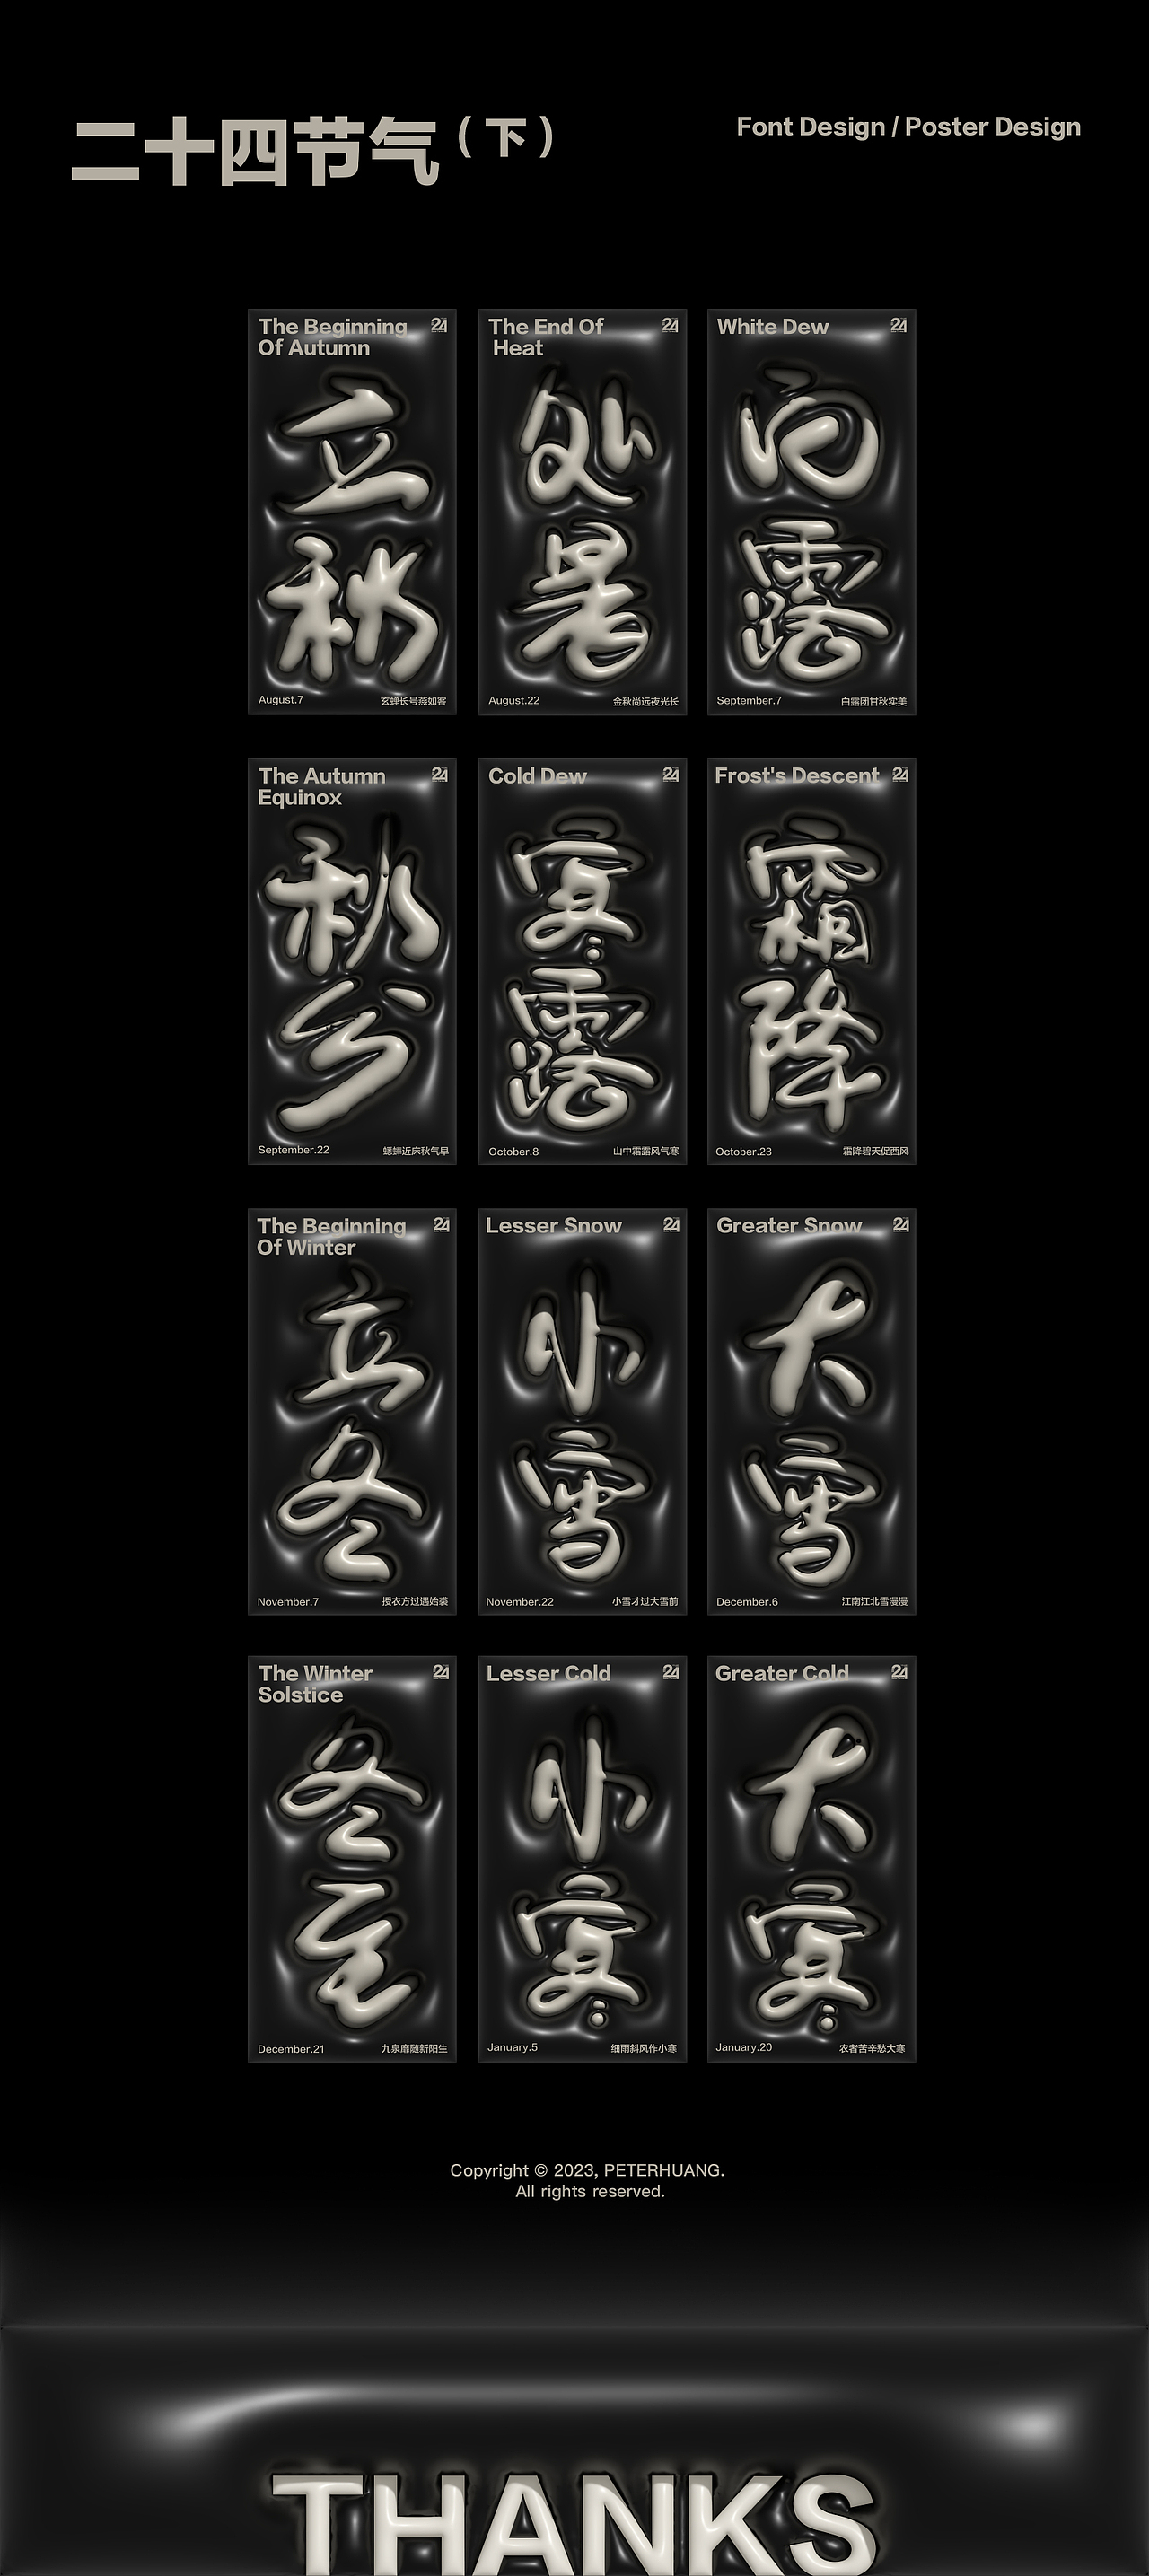 二十四节气（下）
Font Design / Poster Design
The Beginning
Of Autumn
24
立
秋
August.7
玄蝉长号燕如客
The End Of
Heat
24
处
暑
August.22
金秋尚远夜光长
White Dew
24
白
露
September.7
白露团甘秋实美
The Autumn
Equinox
24
秋
分
September.22
蟋蟀近床秋气早
Cold Dew
24
寒
露
October.8
山中霜露风气寒
Frost's Descent
24
霜
降
October.23
霜降碧天促西风
The Beginning
Of Winter
24
立
冬
November.7
授衣方过遇始裘
Lesser Snow
24
小
雪
November.22
小雪才过大雪前
Greater Snow
24
大
雪
December.6
江南江北雪漫漫
The Winter
Solstice
24
冬
至
December.21
九泉靡随新阳生
Lesser Cold
24
小
寒
January.5
细雨斜风作小寒
Greater Cold
24
大
寒
January.20
农者苦辛愁大寒
Copyright © 2023, PETERHUANG.
All rights reserved.
THANKS